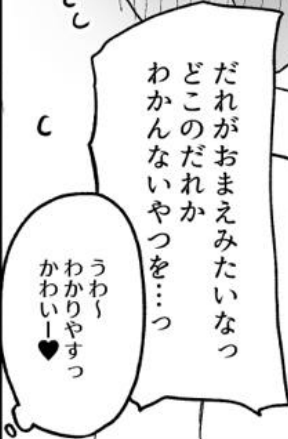 だれがおまえみたいなっ
どこのだれか
わかんないやつを…っ
うわ～
わかりやすっ
かわいー♥